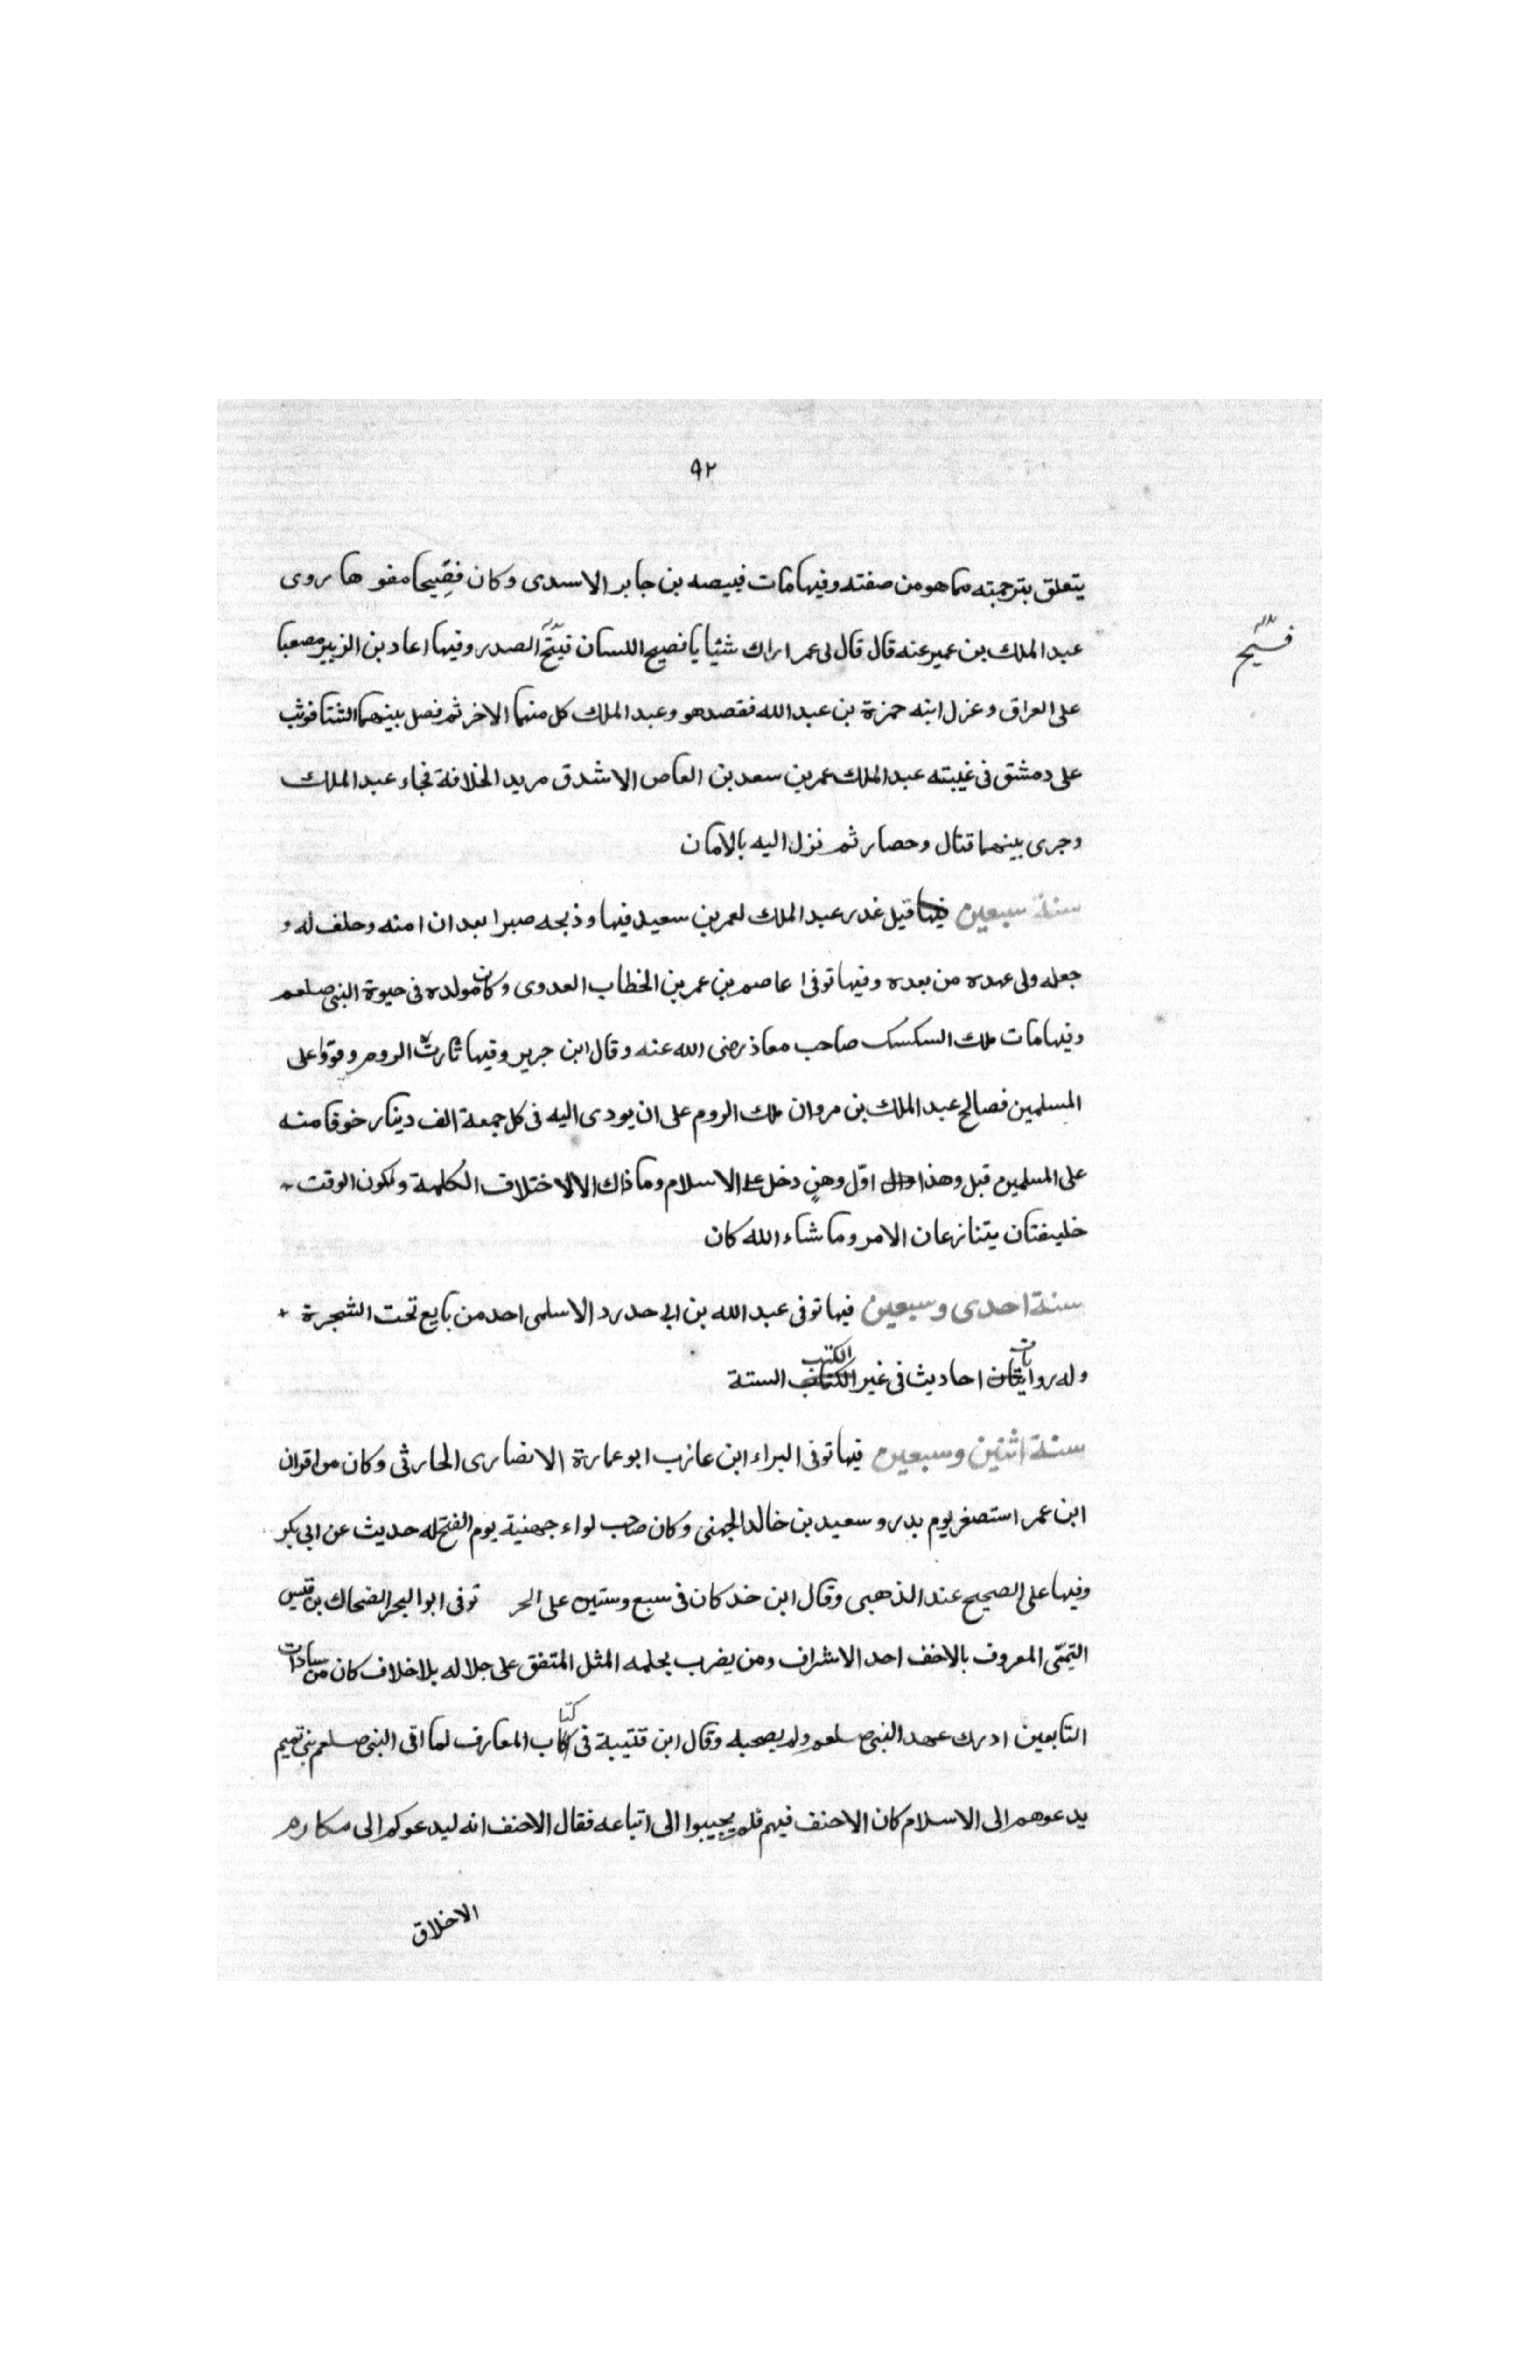 ٩٢
يتعلق بترجمته مما هو من صفته وفيها مات قبيصه بن جابر الاسدى وكان فصيحا مفوها روى
فسيح
عبد الملك بن عمير عنه قال قال لى عمر اراك شئيا يا فصيح اللسان الصدر وفيها اعاد بن الزبير مصعبا
على العراق وعزل ابنه حمزة بن عبد الله فقصد هو وعبد الملك كل منهما الاخر ثم فصل بينهما الشتا فوثب
على دمشق فى غيبته عبد الملك عمر بن سعد بن العاص الاشدق مريد الخلافة فجاء عبد الملك
وجرى بينهما قتال وحصار ثم نزل اليه بالامان
سنة سبعين فيها قيل غدر عبد الملك لعمر بن سعيد فيها وذبحه صبرا بعد ان امنه وحلف له و
جعله ولى عهده من بعده وفيها توفى عاصم بن عمر بن الخطاب العدوى وكان مولده فى حيوة النبى صلعم
وفيها مات ملك السكسك صاحب معاذ رضى الله عنه وقال ابن جرير وفيها ثارت الروم وقووا على
المسلمين فصالح عبد الملك بن مروان ملك الروم على ان يودى اليه فى كل جمعة الف دينار خوفا منه
على المسلمين قبل وهذا اوّل وهنٍ دخل على الاسلام وما ذاك الا لاختلاف الكلمة ولكون الوقت
خليفتان يتنازعان الامر وما شاء الله كان
سنة احدى وسبعين فيها توفى عبد الله بن ابى حدرد الاسلمى احد من بايع تحت الشجرة
وله روايات احاديث فى غير الكتب الستة
سنة اثنين وسبعين فيها توفى البراء ابن عازب ابو عمارة الانصارى الحارثى وكان من اقران
ابن عمر استصغر يوم بدر وسعيد بن خالد الجهنى وكان صاحب لواء جهنية يوم الفتح له حديث عن ابى بكر
وفيها على الصحيح عند الذهبى وقال ابن خدكان فى سبع وستين على الحر توفى ابو البحر الضحاك بن قيس
التيمّى المعروف بالاخف احد الاشراف ومن يضرب بحلمه المثل المتفق على جلاله بلا خلاف كان من سادات
التابعين ادرك عهد النبى صلعم ولم يصحبه وقال ابن قتيبة فى كتاب المعارف لما اقى النبى صلعم بنى تميم
يدعوهم الى الاسلام كان الاحنف فيهم فلم يجيبوا الى اتباعه فقال الاحنف انه ليدعوكم الى مكارم
الاخلاق